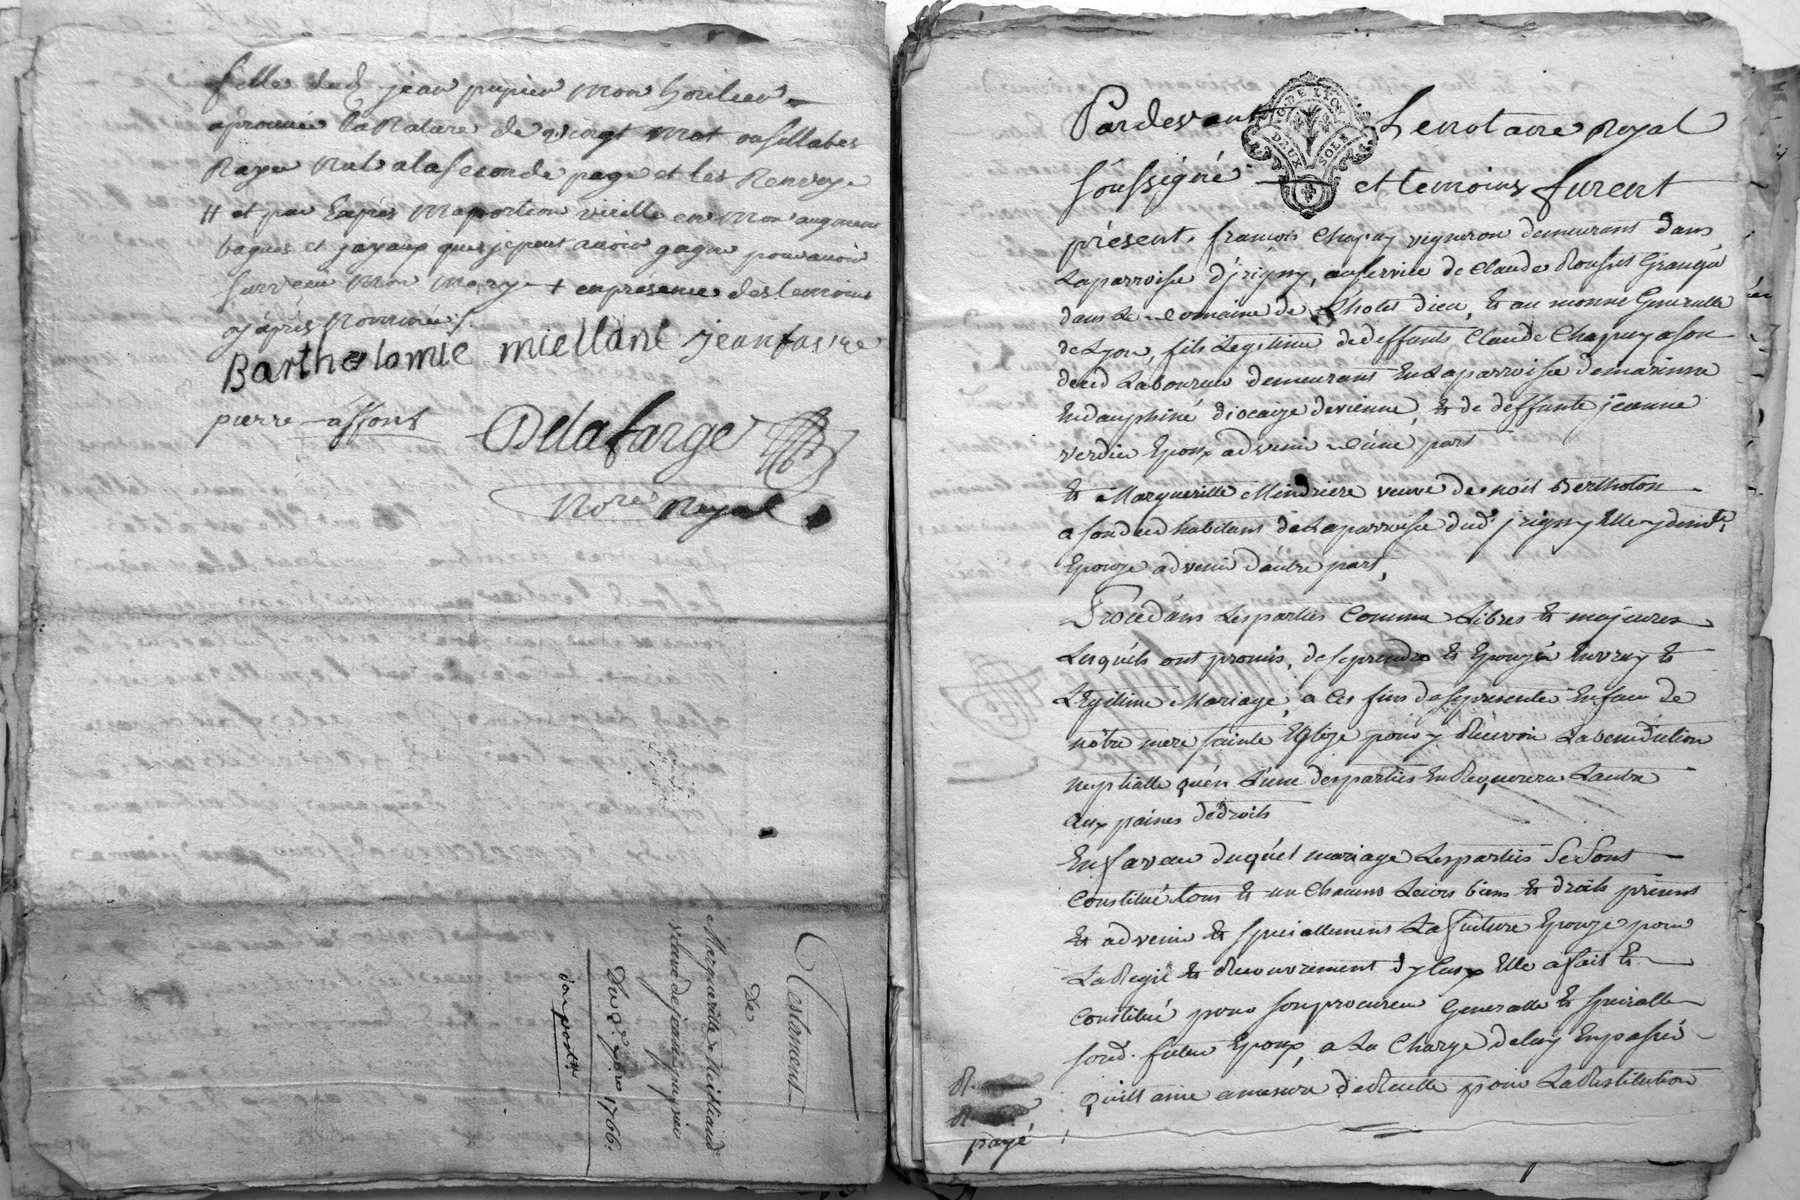 fille dud jean pupier mon héritier
aprouvée la Rature de vingt mot ou sillabes
Rayée nul a la seconde page et les Renvoye
# et par Exprès ma portion virille en mon augment
bagues et joyaux que je peut avoir gagné pour avoir
survécu mon mary + en présence des temoins
cy après Nommés
Barthelomie miellant jean favre
pierre affont
Delafarge
No.re Royal
Testament
De
Marguerite Meilland
veuve de jean pupier
Du 2.e 9bre 1766.
G DE LYON
DEUX SOLS
Pardevant Le notaire Royal
soussigné et temoins furent
présent, francois Chapuy vigneron demeurant dans
La parroisse d'jrigny, au service de Claude Rousset Granger
dans Le Domaine de L'hotel dieu, & aumonne Generalle
de Lyon, fils Legitime de deffunts Claude Chapuy a son
deced Laboureur demeurant En La parroisse de marinne
En dauphiné diocaize de vienne, & de deffunte jeanne
verdier Epoux advenir d'une part
& Marguerite Mindriere veuve de noël Bertholon
a son deced habitant de La parroisse dud. jrigny Elle y demte.
Epouze advenir d'autre part,
Procédans Les parties Comme Libres & majeures
Lesquels ont promis, de se prendre & Epouzer En vray &
Légitime Mariage, a Ces fins de se presenter En face de
nôtre mere sainte Eglize pour y Recevoir La benediction
nuptialle quen L'une des parties En Requerera L'autre
aux paines de droits
En faveur duquel mariage Les parties se sont
Constitué tous & un Chacuns Leurs biens & droits présents
& advenir & speciallement La future Epouze pour
La Regie & Recouvrement d'yceux Elle a fait &
Constitué pour son procureur Generalle & specialle
sond. futur Epoux, a La Charge de Luy En passer
quittance a mesure de Recette pour La Restitution
payé